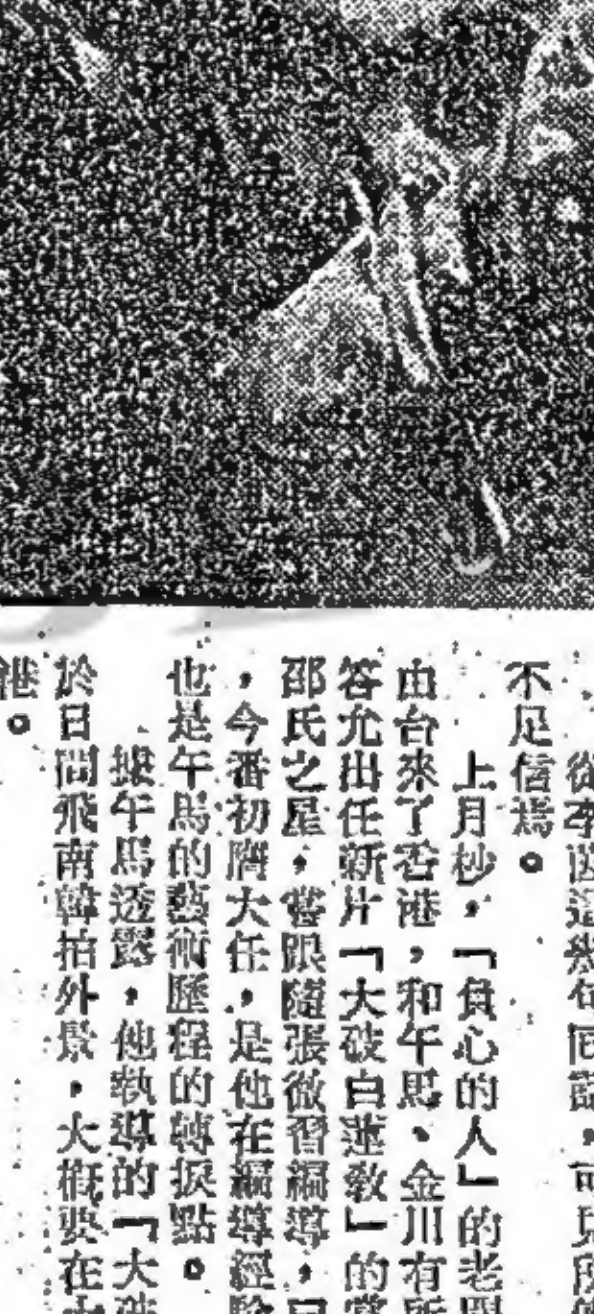 不足信焉。
上月杪,「負心的人」的老
由台來了香港,和午馬、金川有所
答允出任新片「大破白蓮敎」的
邵氏之星,嘗跟隨張徹習編導,曰
,今番初膺大任,是他在編導經驗
也是午馬的藝術歷程的轉捩點。
據午馬透露,他執導的「大破
於日間飛南韓拍外景,大槪要在
港。